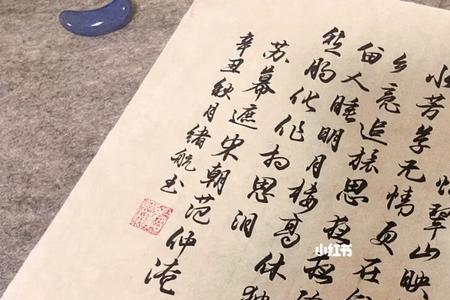 翠山映
水芳草无情更在
乡魂追旅思夜夜
留人睡明月楼高休独
愁肠化作相思泪
苏幕遮宋朝范仲淹
辛丑秋月绪航书
小红书